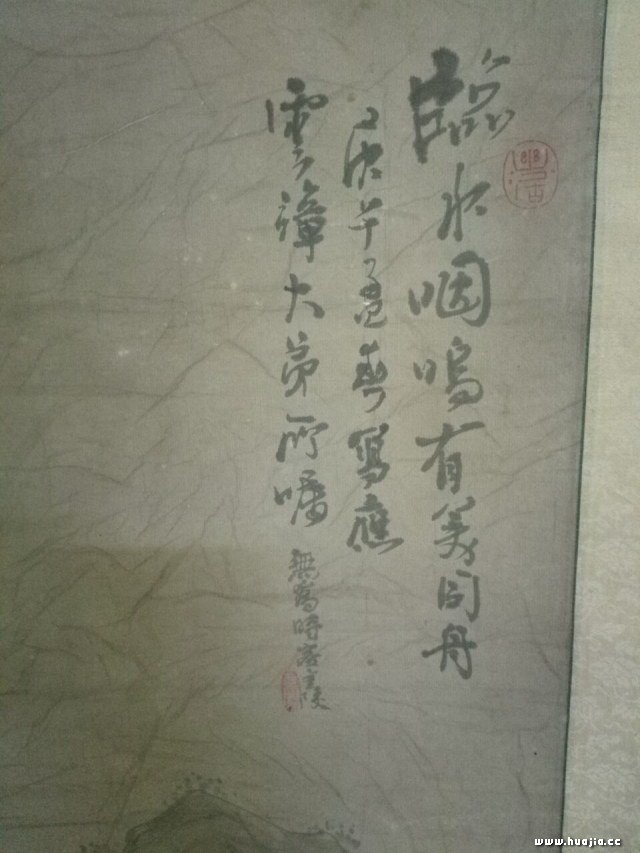 臨水咽鳴有美同舟
庚午孟春寫應
雲漳大弟所囑
無為時客
www.huajia.cc